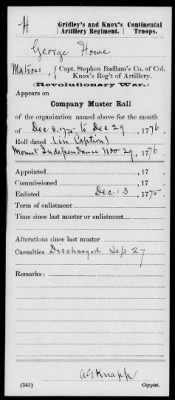 H
Gridley's and Knox's Artillery Regiment.
Continental Troops.
George Howe
Matross, Capt. Stephen Badlam's Co. of Col. Knox's Reg't of Artillery.
Revolutionary War.
Appears on
Company Muster Roll
of the organization named above for the month
of Dec 8, 75 to Dec 29, 1776
Roll dated (See Caption)
Mount Independence Nov 29, 1776
Appointed , 17
Commissioned , 17
Enlisted Dec 13, 1775.
Term of enlistment
Time since last muster or enlistment
Alterations since last muster
Casualties Discharged Sep 27
Remarks:
Knapp
(543) Copyist.